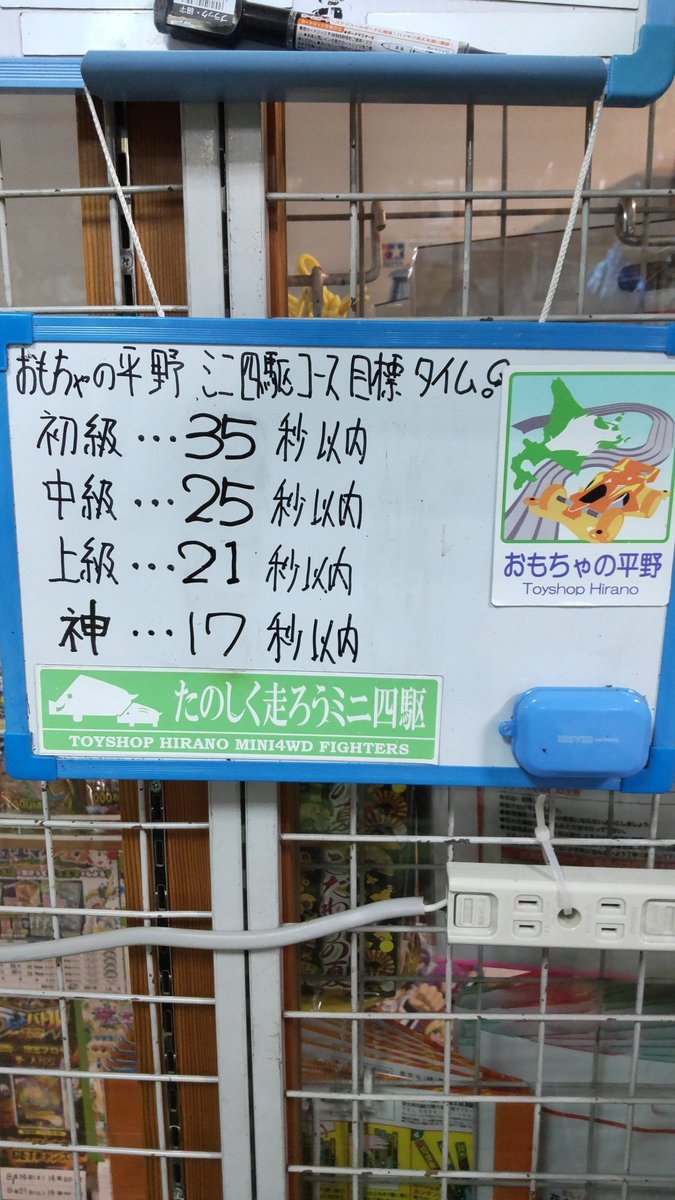 ブラック・細字
おもちゃの平野 ミニ四駆コース目標タイム。
初級…35秒以内
中級…25秒以内
上級…21秒以内
神…17秒以内
おもちゃの平野
Toyshop Hirano
たのしく走ろうミニ四駆
TOYSHOP HIRANO MINI4WD FIGHTERS